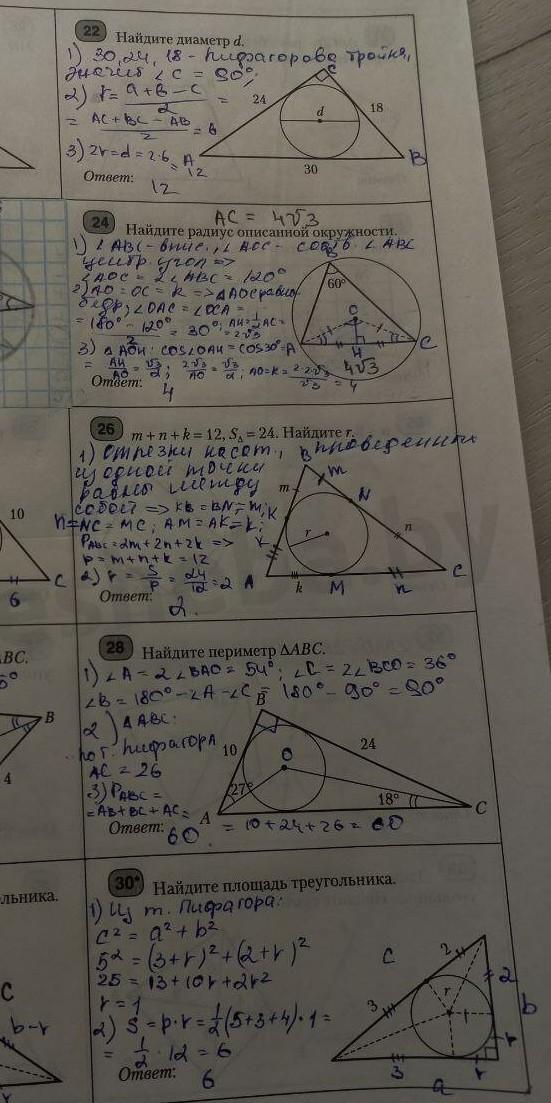 22 Найдите диаметр d.
1) 30, 24, 18 - Пифагорова тройка,
значит ∠C = 90°;
2) r = (a+b-c)/2 =
= (AC+BC-AB)/2 = 6
3) 2r = d = 2·6 = 12
Ответ:
12
C
24
d
18
A
30
B
24 AC = 4√3
Найдите радиус описанной окружности.
1) ∠ABC - впис., ∠AOC - соотв. ∠ABC
центр. угол =>
∠AOC = 2∠ABC = 120°
2) AO = OC = R => ΔAOC равно-
бедр; ∠OAC = ∠OCA =
= (180°-120°)/2 = 30°; AH = 1/2 AC =
= 2√3
3) ΔAOH: cos∠OAH = cos30° =
= AH/AO = √3/2; 2√3/AO = √3/2; AO = R = 2·2√3/√3 = 4
Ответ:
4
B
60°
O
A
H
C
4√3
26 m + n + k = 12, SΔ = 24. Найдите r.
1) Отрезки касат., проведенных
из одной точки
равны между
собой => KB = BN = m;
n = NC = MC; AM = AK = k;
PABC = 2m+2n+2k =>
p = m+n+k = 12
2) r = S/p = 24/12 = 2
Ответ:
2.
B
m
m
N
K
r
n
k
A
k
M
n
C
28 Найдите периметр ΔABC.
1) ∠A = 2∠BAO = 54°; ∠C = 2∠BCO = 36°
∠B = 180° - ∠A - ∠C = 180° - 90° = 90°
2) ΔABC:
по т. Пифагора
AC = 26
3) PABC =
= AB+BC+AC =
= 10+24+26 = 60
Ответ:
60
B
10
24
O
27°
18°
A
C
30* Найдите площадь треугольника.
1) Из т. Пифагора:
c² = a² + b²
5² = (3+r)² + (2+r)²
25 = 13+10r+2r²
r = 1
2) S = p·r = 1/2(5+3+4)·1 =
= 1/2 · 12 = 6
Ответ:
6
c
2
2
r
3
b
r
3
r
a
10
C
6
ABC.
B
4
льника.
C
b-r